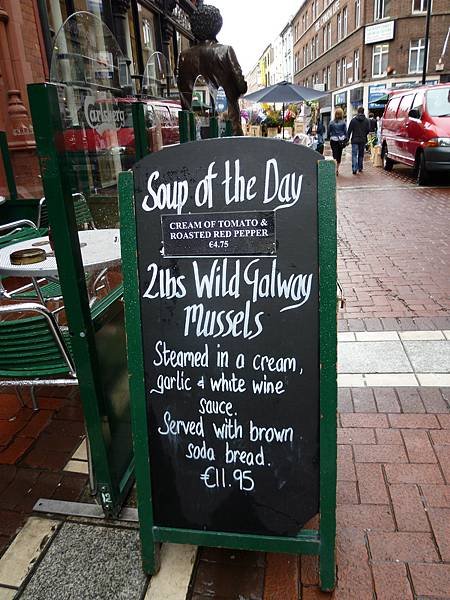 Carlsberg
Soup of the Day
CREAM OF TOMATO &
ROASTED RED PEPPER
€4.75
2lbs Wild Galway
Mussels
Steamed in a cream,
garlic & white wine
sauce.
Served with brown
soda bread.
€11.95
12